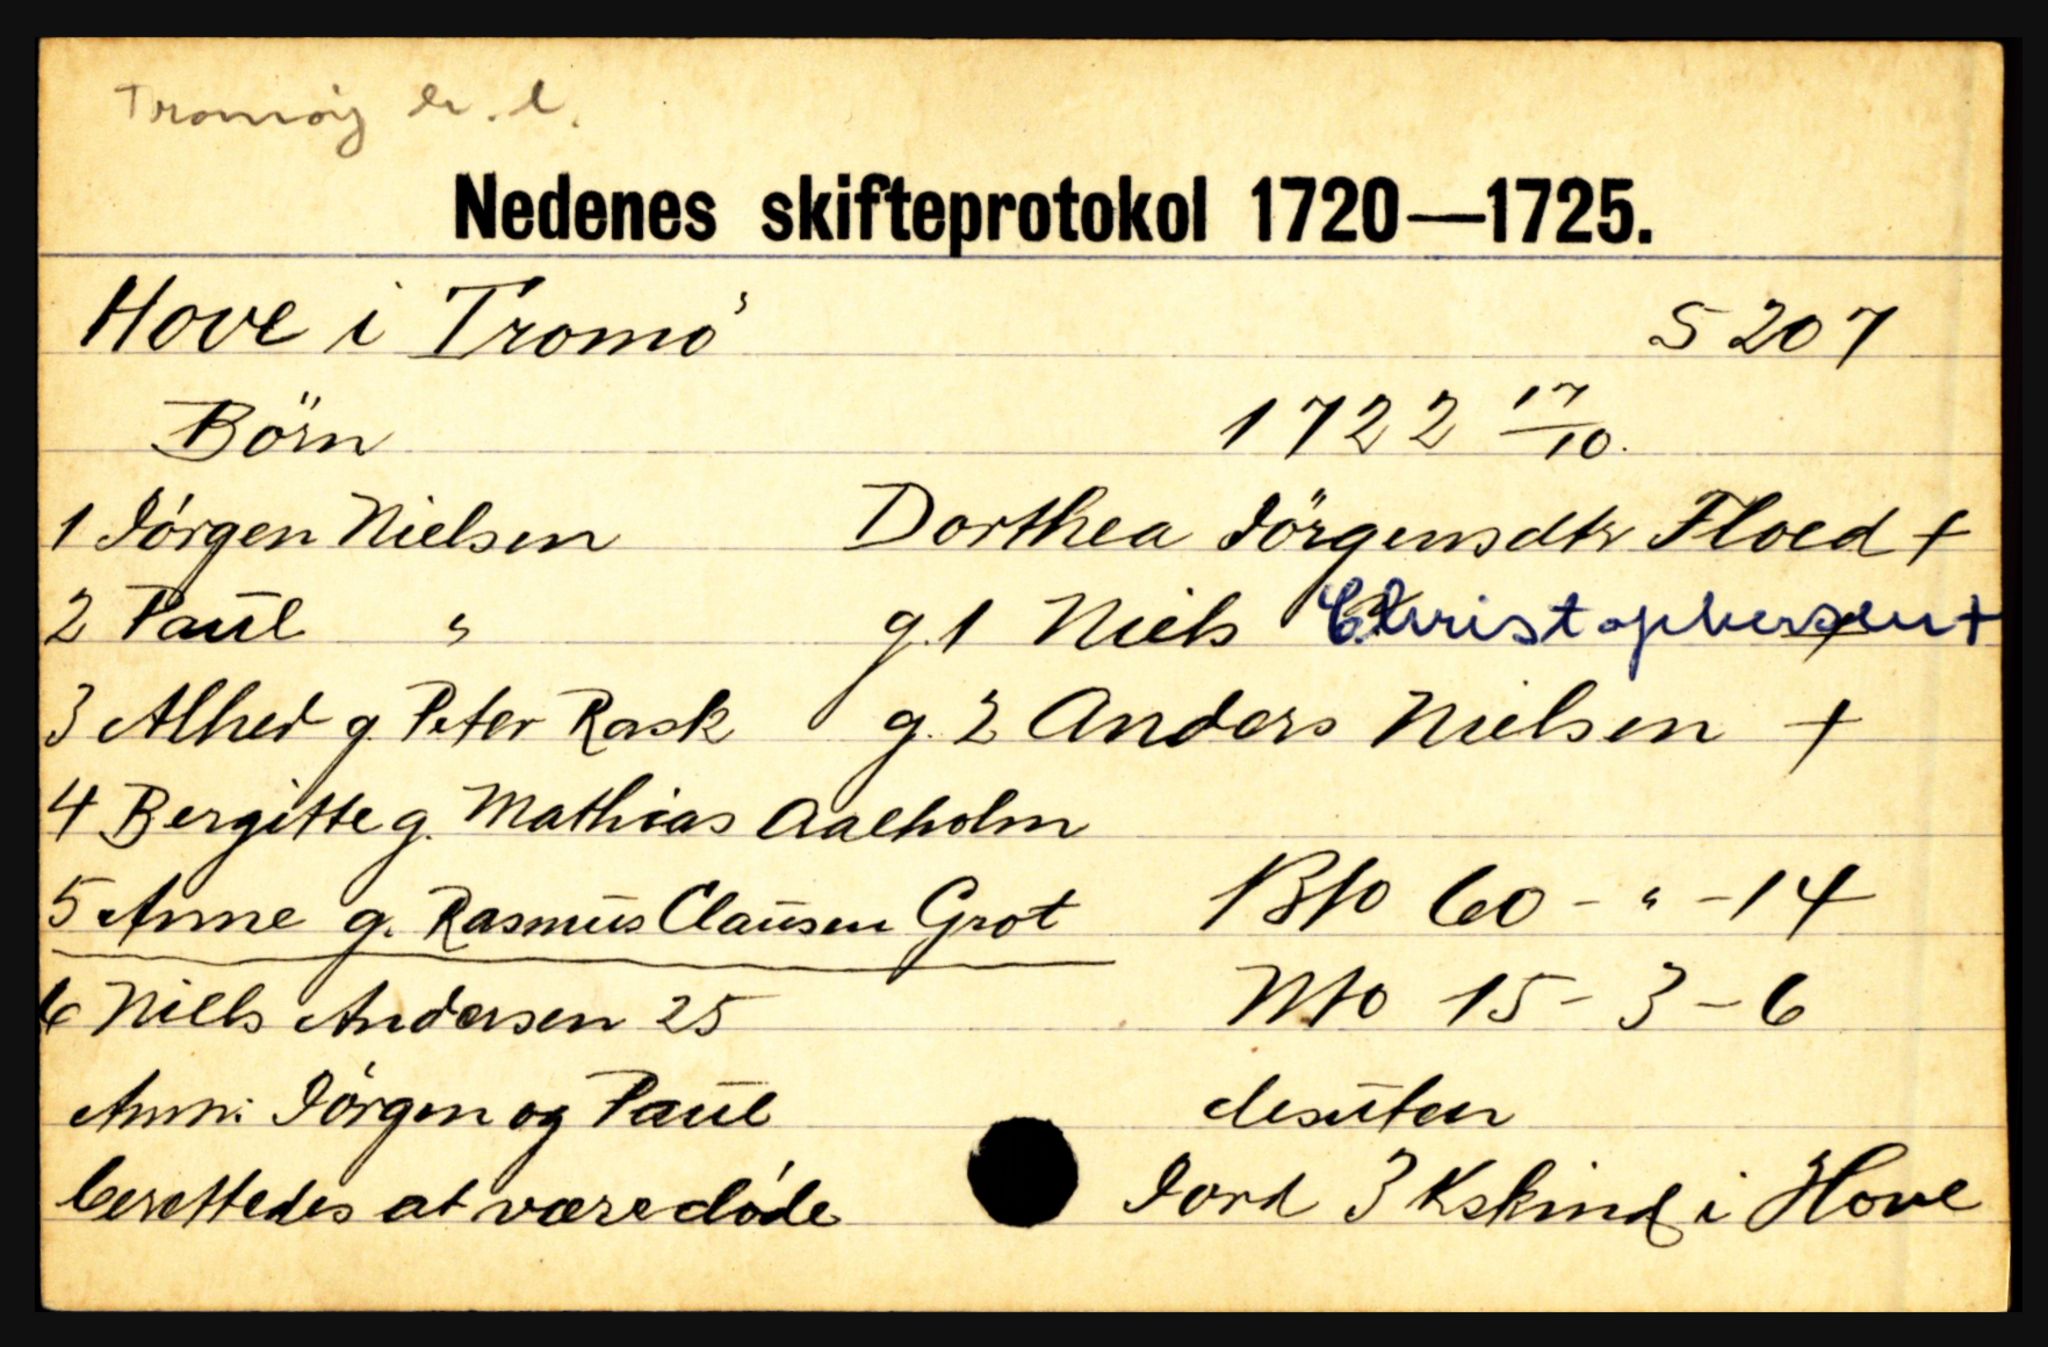 Tromøy
Nedenes skifteprotokol 1720—1725.
Hove i Tromó S 207
Börn 1722 17/10.
1 Jórgen Nielsen Dorthea Jörgensdtr Floed +
2 Paul " g. 1 Niels Christophersen +
3 Alhed g. Peter Rask g. 2 Anders Nielsen +
4 Bergitte g. Mathias Aalholm
5 Anne g. Rasmus Clausen Grot Bfo 60 - " - 14
6 Niels Andersen 25 Nfo 15 - 3 - 6
Anm: Jórgen og Paul desuten
berettedes at være dóde Jord 3 Kskind i Hove